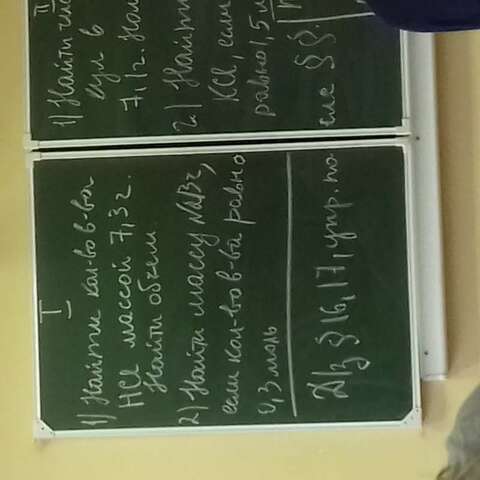 I
1) Найти кол-во в-ва
HCl массой 7,3 г.
Найти объем
2) Найти массу NaBr,
если кол-во в-ва равно
0,3 моль
Д/з § 16, 17, упр. по-
II
1) Найти
в
7,1 г.
2) Найти
KCl, если
равно 1,5
сле §§.